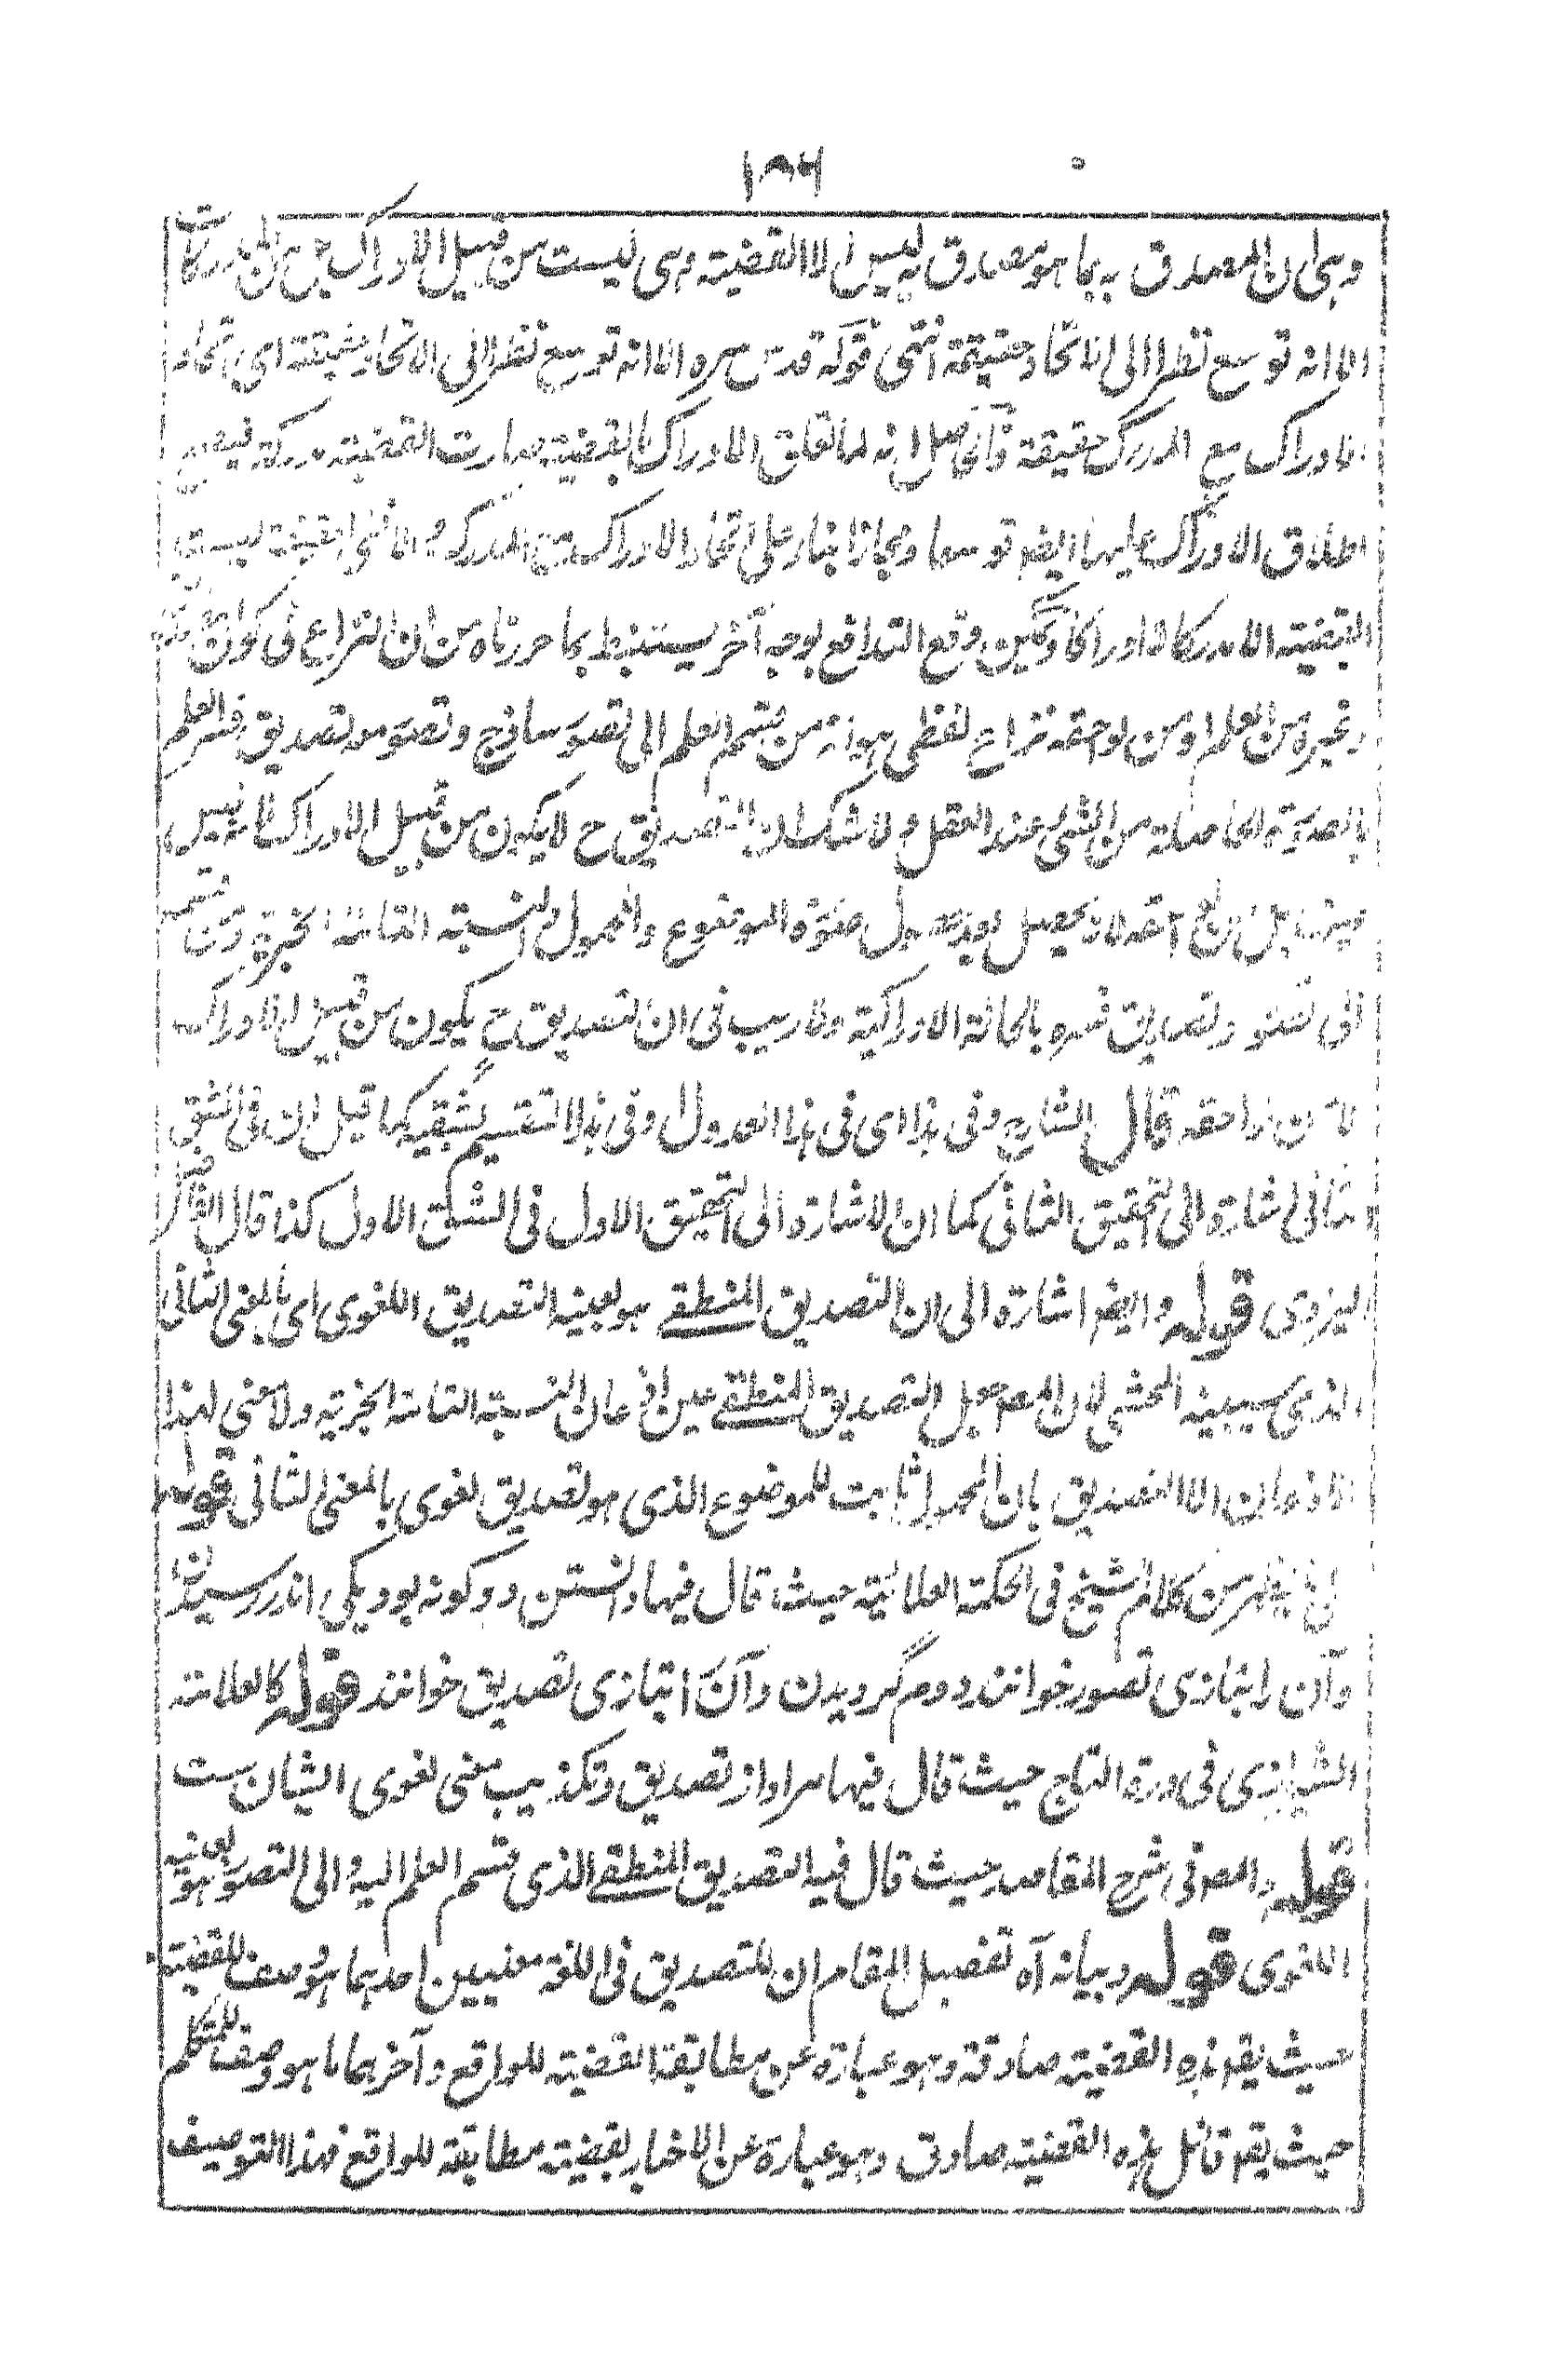 ١٨٦
وهى ان المصدق به بما هو مصدق به ليس الا القضية وهى ليست من قبيل الادراك بل من المدركات
الا انه توسع نظرا الى الاتحاد حقيقة انتهى فقوله قدس سره الا انه توسع نظرا الى الاتحاد حقيقة اى اتحاد
الادراك مع المدرك حقيقة فالحاصل انه لما تعلق الادراك بالقضية صارت القضية مدركة فيصح
اطلاق الادراك عليها ايضا توسعا ومجازا بناء على اتحاد الادراك مع المدرك والا ففى الحقيقة ليست
القضية الا مدركا لا ادراكا ويمكن دفع التدافع بوجه آخر يستنبط بما حررناه من ان النزاع فى كون التصديق
وغيره من العلم او من لواحقه نزاع لفظى هو انه من قسم العلم الى تصور ساذج وتصور معه تصديق فسر العلم
بالصورة الحاصلة من الشئ عند العقل ولا شك ان التصديق ح لا يكون من قبيل الادراك لانه ليس
بل من لواحقه لانه يحصل بعد حصول صورة الموضوع والمحمول والنسبة التامة الخبرية ومن قسمه
الى تصور وتصديق فسره بالحالة الادراكية ولا ريب فى ان التصديق ح يكون من قبيل الادراك
لا من لواحقه قال الشارح وفى هذا اى فى هذا العدول وفى هذا التقسيم بشقيه كما قيل ان فى الشق
الثانى اشارة الى التحقيق الثانى كما ان الاشارة الى التحقيق الاول فى الشق الاول كذا قال الفاضل
اليزدى قوله وايضا اشارة الى ان التصديق المنطقى هو بعينه التصديق اللغوى اى بالمعنى الثانى
الذى سيبينه المحشى لان المصر جعل التصديق المنطقى عين اذعان النسبة التامة الخبرية ولا معنى لهذا
الاذعان الا التصديق بان المحمول ثابت للموضوع الذى هو تصديق لغوى بالمعنى الثانى قوله
من كلام الشيخ فى الحكمة العلائية حيث قال فيها دانستن دو گونه بود يكى اندر رسيدن
وآن را بتازى تصور خوانند دوم گرويدن وآن را بتازى تصديق خوانند قوله كالعلامة
الشيرازى فى درة التاج حيث قال فيها مراد از تصديق وتكذيب معنى لغوى ايشان ست
قوله والمصر فى شرح المقاصد حيث قال فيه التصديق المنطقى الذى قسم العلم اليه والى التصور هو بعينه
اللغوى قوله وبيانه آه تفصيل المقام ان للتصديق فى اللغة معنيين احدهما هو وصف للقضية
حيث يقم هذه القضية صادقة وهو عبارة عن مطابقة القضية للواقع وآخرهما ما هو وصف للمتكلم
حيث يقم قائل هذه القضية صادق وهو عبارة عن الاخبار بقضية مطابقة للواقع فهذا التوصيف